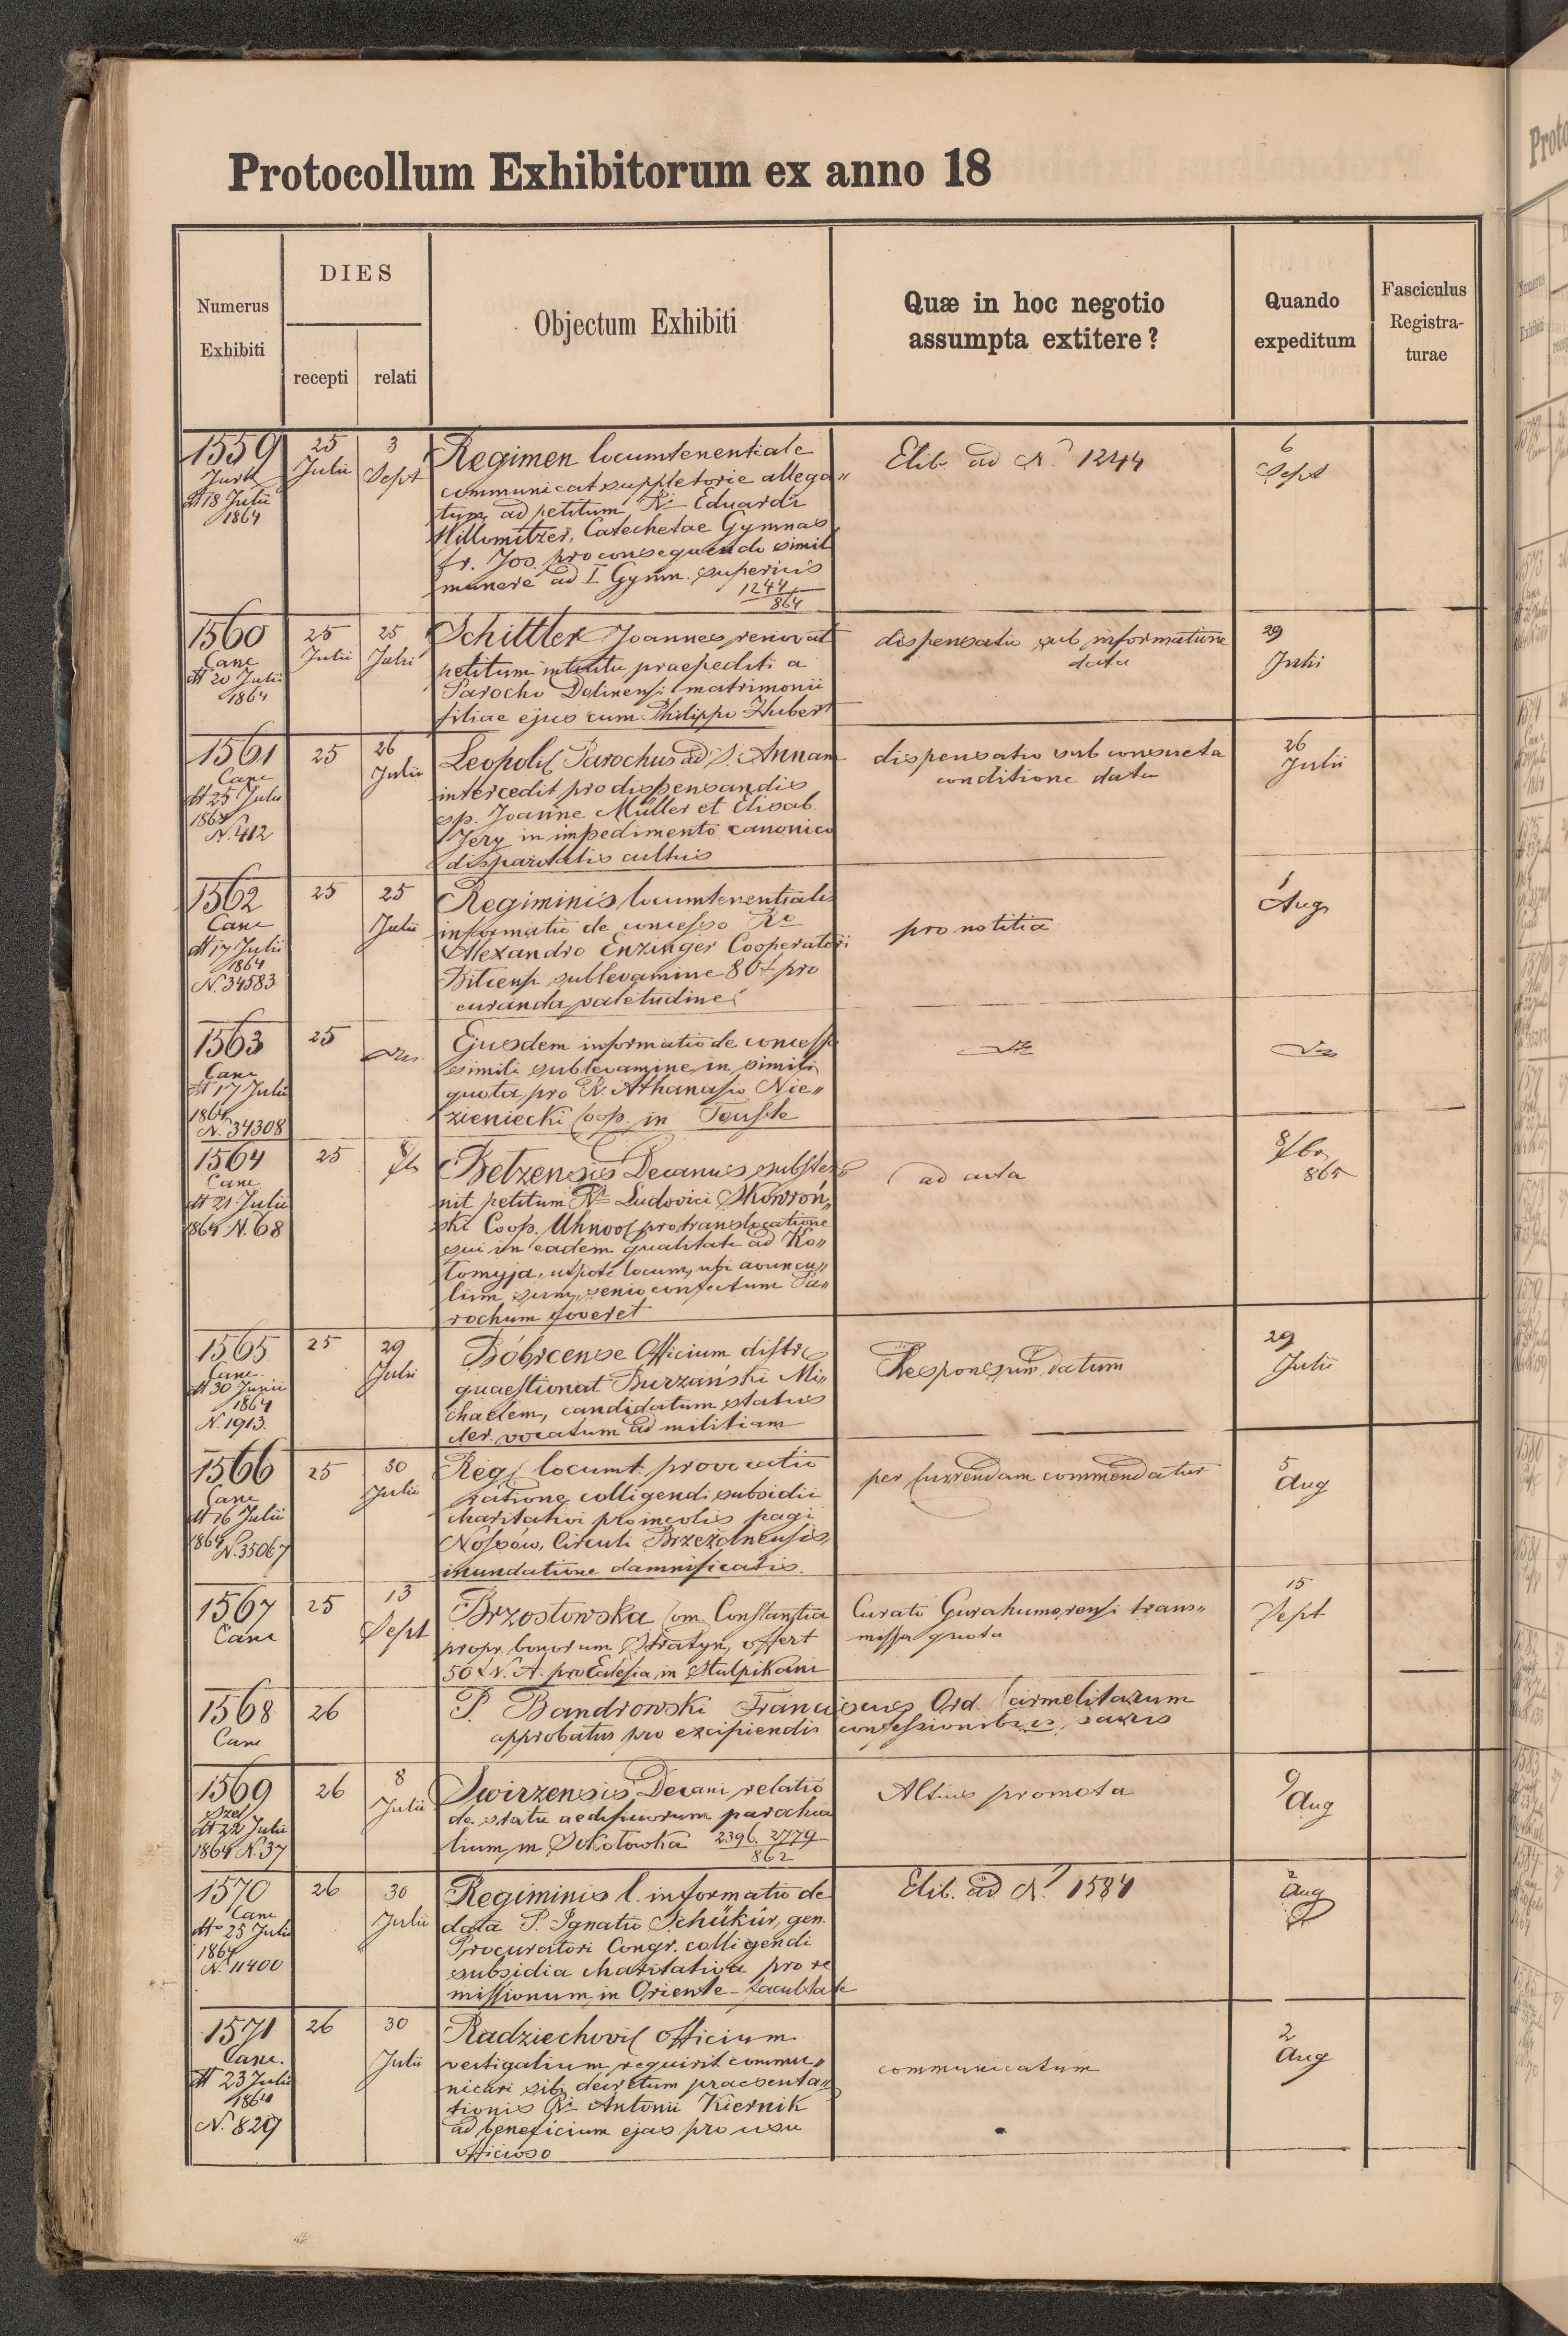 Protocollum Exhibitorum ex anno 18
Numerus
Exhibiti
DIES
recepti
relati
Objectum Exhibiti
Quæ in hoc negotio
assumpta extitere?
Quando
expeditum
Fasciculus
Registra-
turae
1559
dtt 18 Julii
1864
25
Julii
3
Sept
Regimen locumtenentiale
communicat suppletorie allega„
tum ad petitum Ri Eduardi
Millomitzer, Catechetae Gymnas
fr. Jos. pro consequendo simili
munere ad I Gymn. superius
1244
864
Elib. ad N. 1244
6
Sept
1560
Canc
dtt 20 Julii
1864
25
Julii
25
Julii
Schittler Joannes renovat
petitum intuitu praepediti a
Parocho Dolinensi matrimonii
filiae ejus cum Philippo Hubert
dispensatio sub informatione
data
29
Julii
1561
Canc
dtt 25 Julii
1864
N. 412
25
26
Julii
Leopol Parochus ad S. Annam
intercedit pro dispensandis
sp. Joanne Müller et Elisab.
Jery in impedimento canonico
disparitatis cultus
dispensatio sub consueta
conditione data
26
Julii
1562
Canc
dtt 17 Julii
1864
N. 34583
25
25
Julii
Regiminis locumtenentialis
informatio de concesso Ro
Alexandro Enzinger Cooperatori
sublevamine 80 f pro
curanda valetudine
pro notitia
1
Aug
1563
Canc
dtt 17 Julii
1864
N. 34308
25
Ejusdem informatio de concesso
simili sublevamine in simili
quota pro R. Athanasio Nie„
zieniecki Coop. in Touste
1564
Canc
dtt 21 Julii
1864 N. 68
25
Betzensis Decanus subster„
nit petitum Ri Ludovici Skowroń„
ski Coop. Uhnov pro translocatione
sui in eadem qualitate ad Ko„
lomyja, utpote locum, ubi avuncu„
lum suum, senio confectum Pa„
rochum foveret
ad acta
8/br
865
1565
Canc
dtt 30 Junii
1864
N. 1913.
25
29
Julii
Bóbrcense Officium distric
quaestionat Burzański Mi„
chaelem, candidatum status
cler. vocatum ad militiam
Responsum datum
29
Julii
1566
Canc
dtt 16 Julii
1864
N. 35067
25
30
Julii
Reg locumt. provocatio
ratione colligendi subsidii
charitativi pro incolis pagi
Nossów, Circuli Brzeżanensis,
inundatione damnificatis.
per Currendam commendatur
5
Aug
1567
Canc
25
13
Sept
Brzostowska Com. Constantia
propr. bonorum Stratyn, offert
50 f N. A. pro Ecclesia in Stulpikani
Curato Gurahumorensi trans„
missa quota
15
Sept
1568
Canc
26
P. Bandrowski Franciscus Ord. Carmelitarum
approbatus pro excipiendis confessionibus sacris
1569
dtt 22 Julii
1864 N. 37
26
8
Julii
Swirzensis Decani relatio
de statu aedificiorum parochia
lium in Sokołowka 2396. 2779
862
Altius promota
9
Aug
1570
Canc
dtto 25 Julii
1864
N. 11400
26
30
Julii
Regiminis l. informatio de
data P. Ignatio Schükür, gen.
Procuratori Congr. colligendi
subsidia charitativa pro re
missionum in Oriente - facultate
Elib. ad N. 1584
2
Aug
1571
Canc.
dtt 23 Julii
1864
N. 829
26
30
Julii
Radziechovi officium
vectigalium requirit commu„
nicari sibi decretum praesenta„
tionis Ri Antonii Kiernik
ad beneficium ejas pro usu
officioso
communicatum
2
Aug